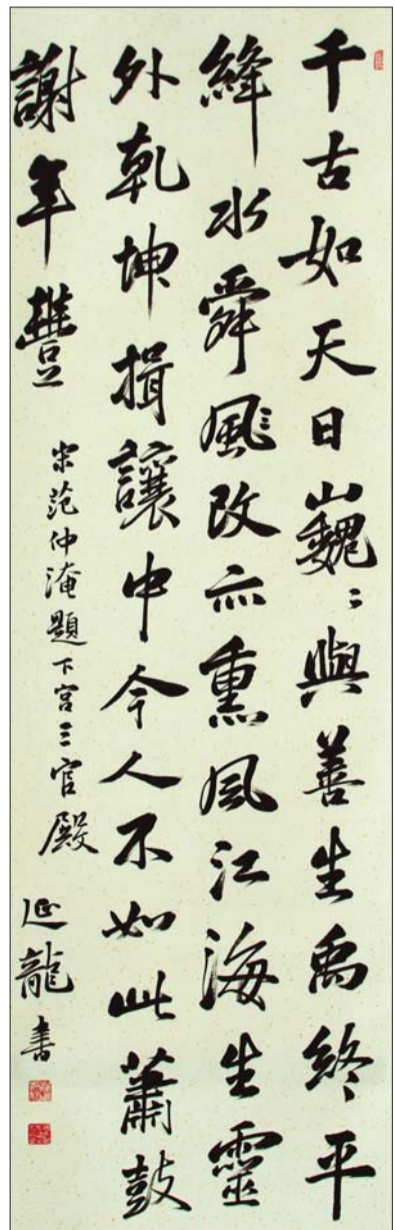 千古如天日巍〻與善生禹終平
絳水舜改亦熏風江海生靈
外乾坤揖讓中今人不如此蕭鼓
謝年豐
宋范仲淹題下宮三官殿
延龍書